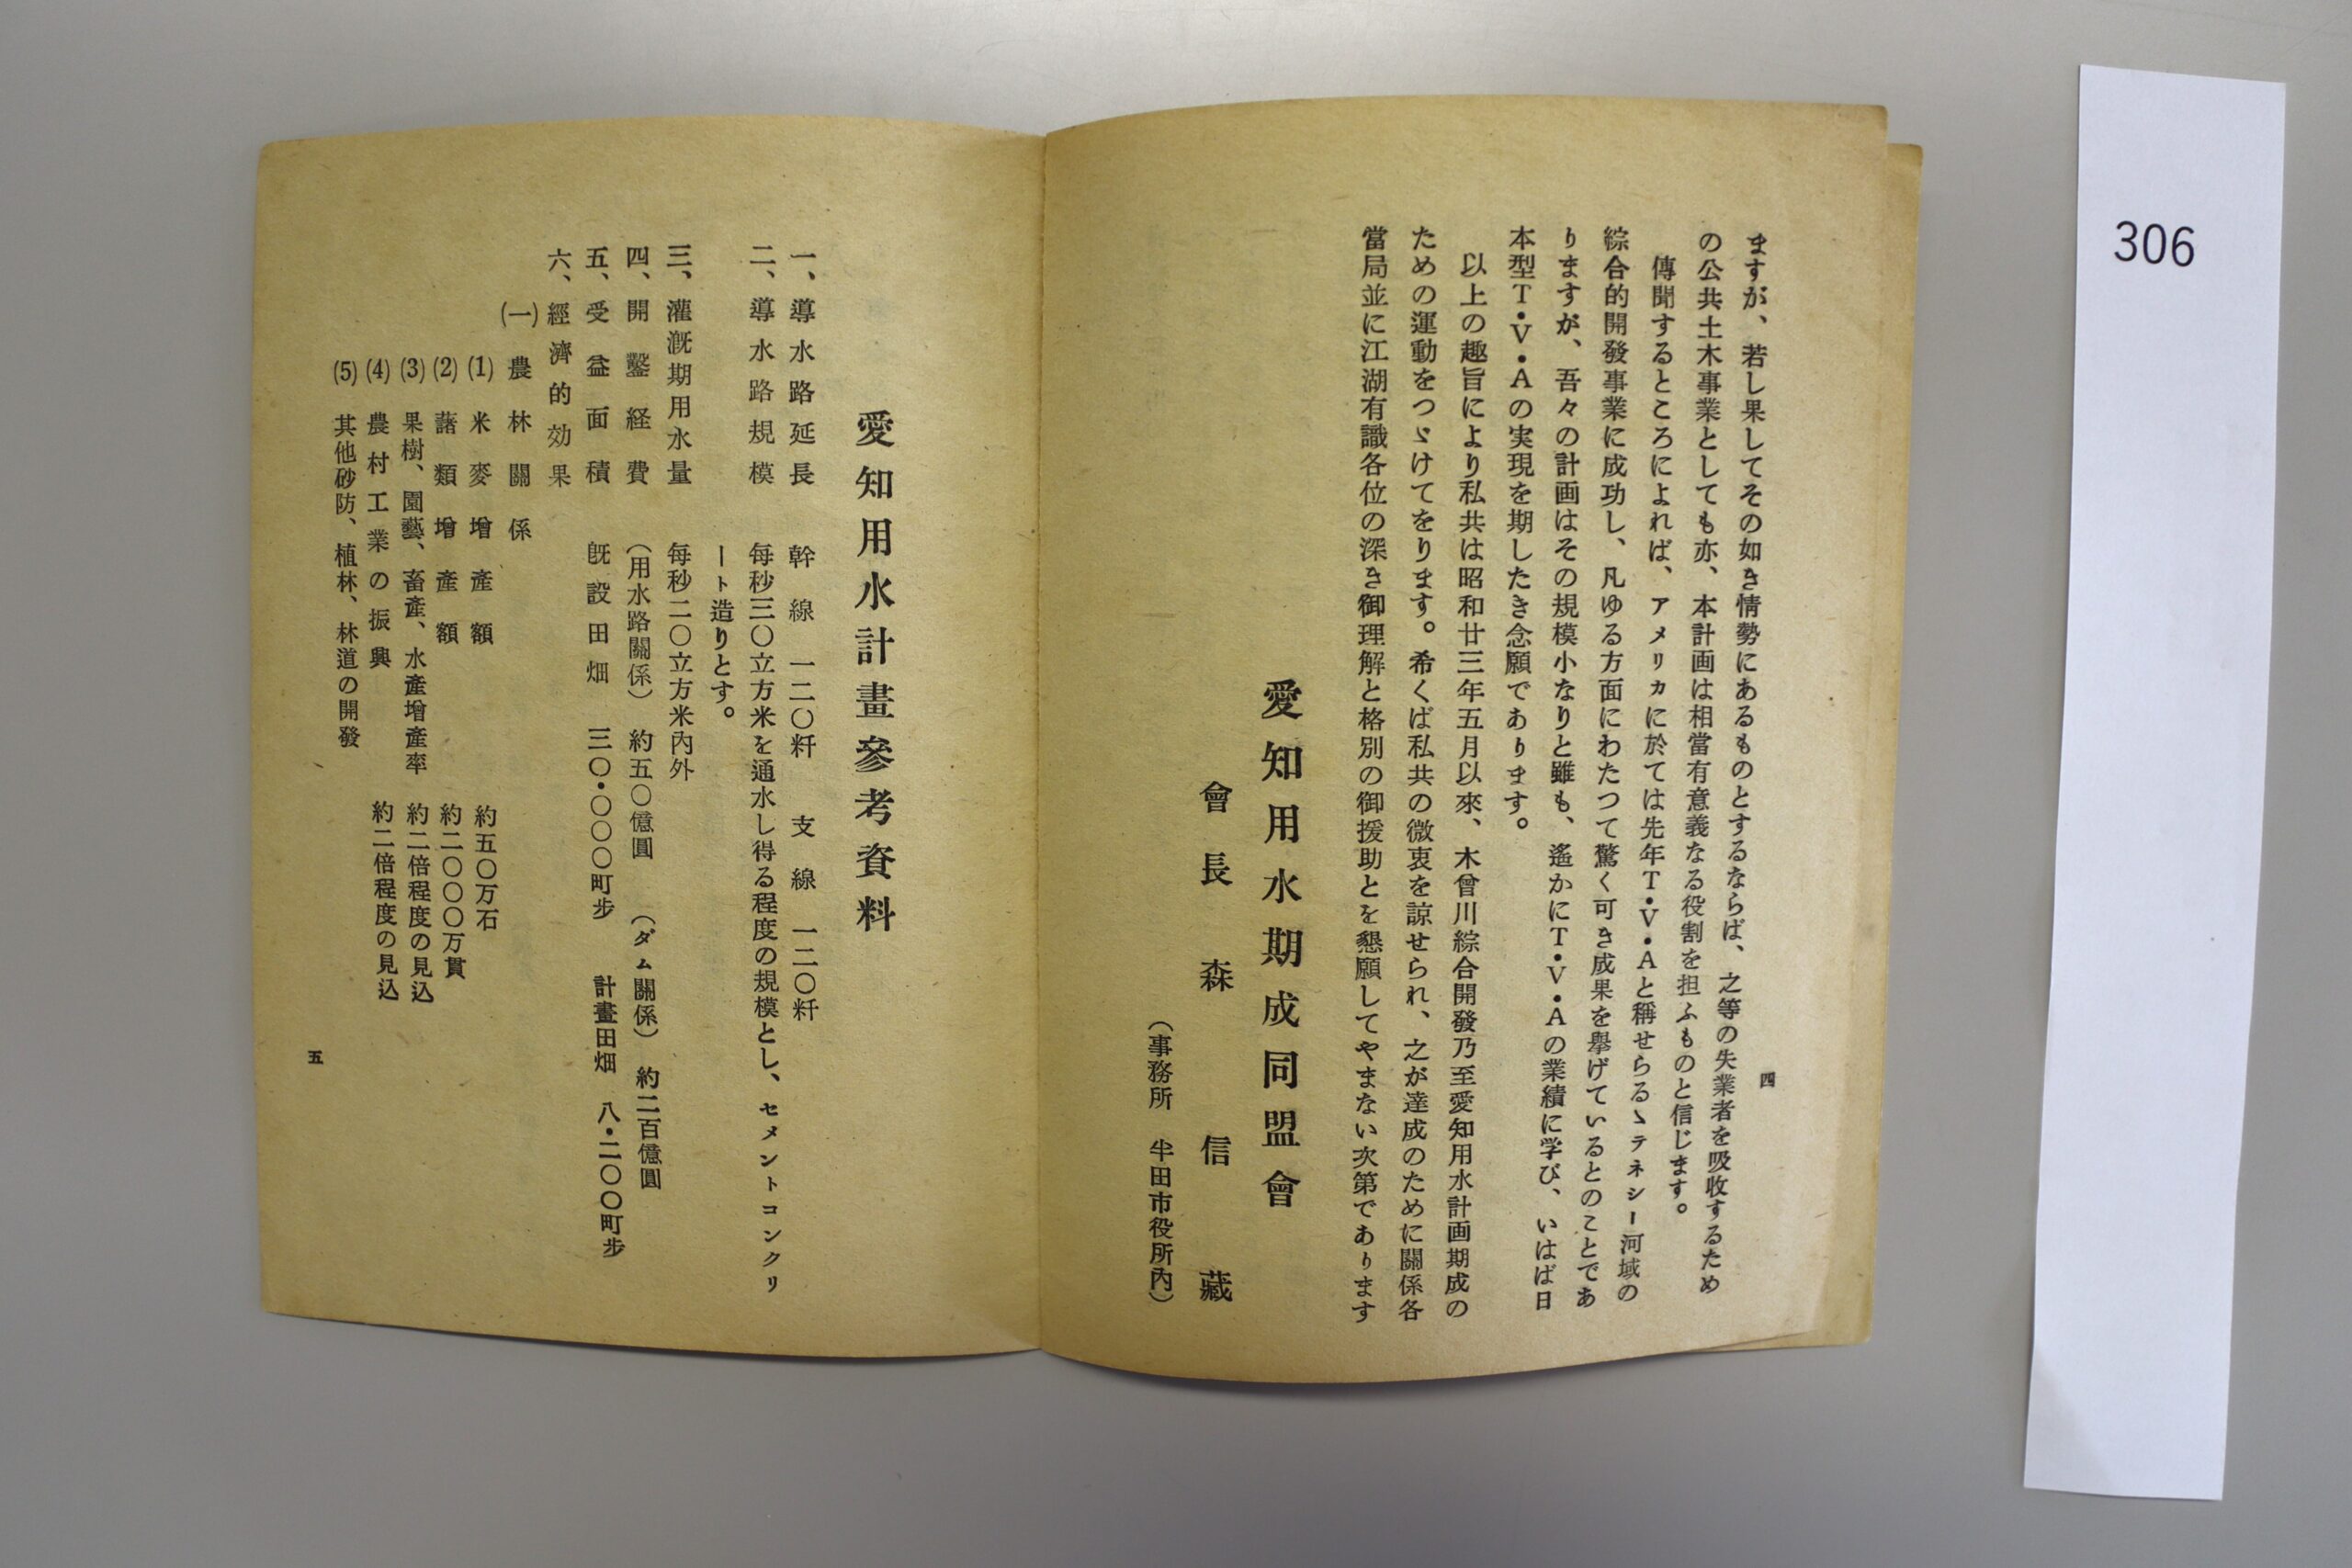 ますが、若し果してその如き情勢にあるものとするならば、之等の失業者を吸收するため
の公共土木事業としても亦、本計画は相當有意義なる役割を担ふものと信じます。
傳聞するところによれば、アメリカに於ては先年T・V・Aと稱せらるゝテネシー河域の
綜合的開發事業に成功し、凡ゆる方面にわたつて驚く可き成果を擧げているとのことであ
りますが、吾々の計画はその規模小なりと雖も、遙かにT・V・Aの業績に学び、いはば日
本型T・V・Aの実現を期したき念願であります。
以上の趣旨により私共は昭和廿三年五月以來、木曾川綜合開發乃至愛知用水計画期成の
ための運動をつゞけてをります。希くば私共の微衷を諒せられ、之が達成のために關係各
當局並に江湖有識各位の深き御理解と格別の御援助とを懇願してやまない次第であります
愛知用水期成同盟會
會長 森 信藏
（事務所 半田市役所內）
四
愛知用水計畫參考資料
一、導水路延長 幹線 一二〇粁 支線 一二〇粁
二、導水路規模 每秒三〇立方米を通水し得る程度の規模とし、セメントコンクリ
ート造りとす。
三、灌漑期用水量 每秒二〇立方米內外
四、開鑿経費 （用水路關係）約五〇億圓 （ダム關係）約二百億圓
五、受益面積 既設田畑 三〇・〇〇〇町步 計畫田畑 八・二〇〇町步
六、經濟的効果
(一) 農林關係
(1) 米麥增產額 約五〇万石
(2) 藷類增產額 約二〇〇〇万貫
(3) 果樹、園藝、畜產、水產增產率 約二倍程度の見込
(4) 農村工業の振興 約二倍程度の見込
(5) 其他砂防、植林、林道の開發
五
306